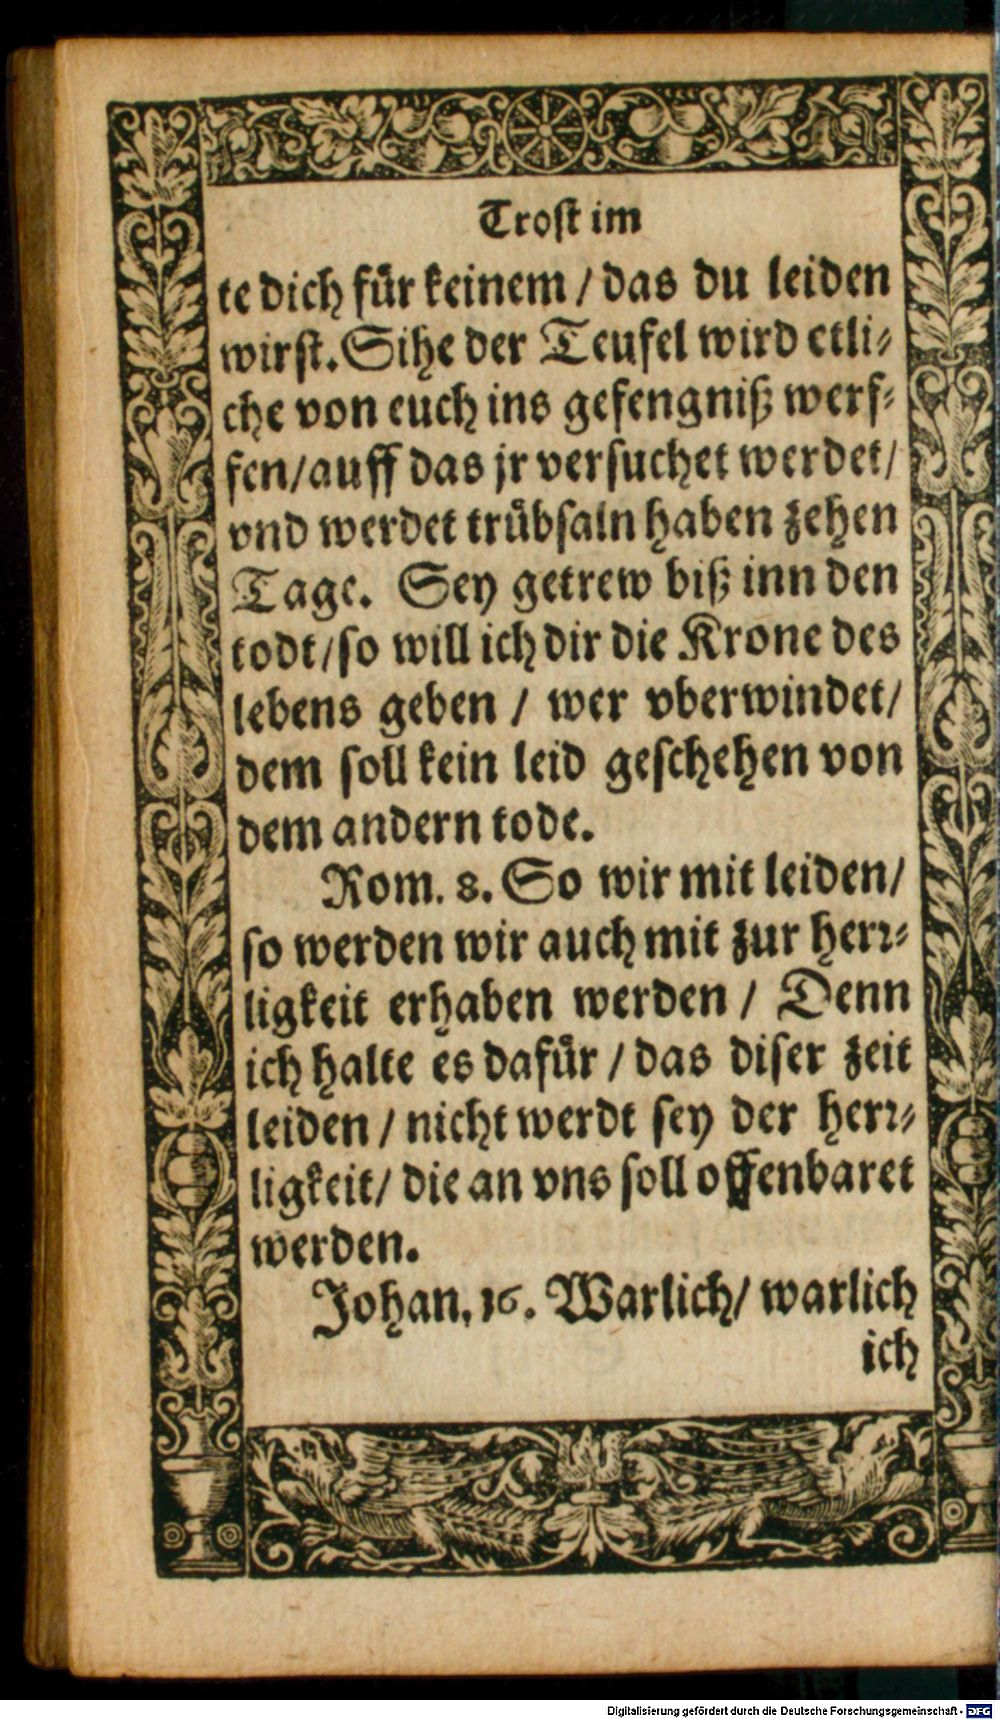 Trost im
te dich für keinem / das du leiden
wirst. Sihe der Teufel wird etli⸗
che von euch ins gefengniß werf⸗
fen / auff das jr versuchet werdet /
vnd werdet trübsaln haben zehen
Tage. Sey getrew biß inn den
todt / so will ich dir die Krone des
lebens geben / wer vberwindet /
dem soll kein leid geschehen von
dem andern tode.
Rom. 8. So wir mit leiden /
so werden wir auch mit zur herr⸗
ligkeit erhaben werden / Denn
ich halte es dafür / das diser zeit
leiden / nicht werdt sey der herr⸗
ligkeit / die an vns soll offenbaret
werden.
Johan. 16. Warlich / warlich
ich
Digitalisierung gefördert durch die Deutsche Forschungsgemeinschaft - DFG